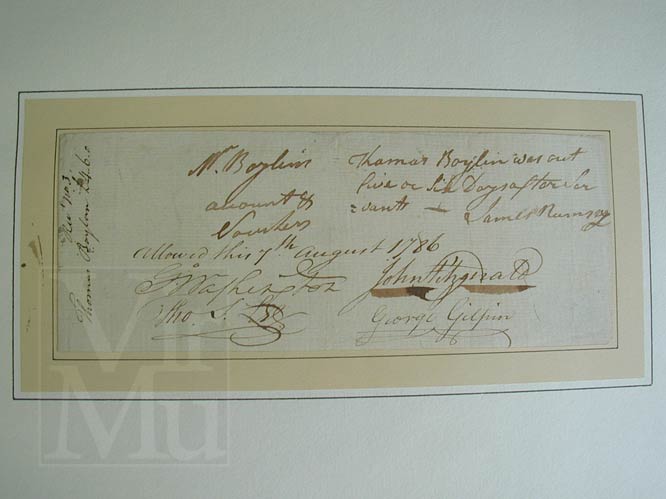 Mr. Boylin
acount &
Vouchers
Thomas Boylin was out
five or Six Days after Ser
=vants —
James Rumsey
Allowed this 7th August 1786
Go Washington
John Fitzgerald
Tho. S. Lee
George Gilpin
No. 3
Thomas Boylan £4.6.0
Vir
Mu